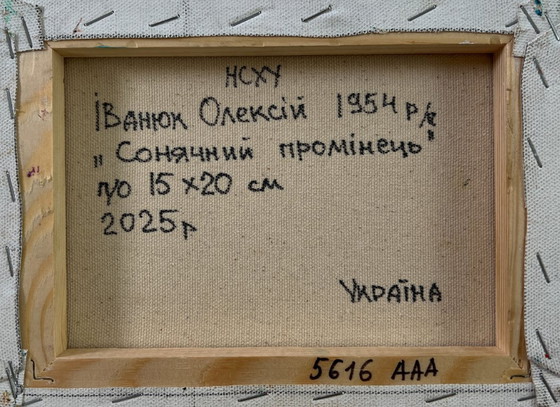 НСХУ
Іванюк Олексій 1954 р/н
„Сонячний промінець"
п/о 15 х 20 см
2025р
Україна
5616 ААА